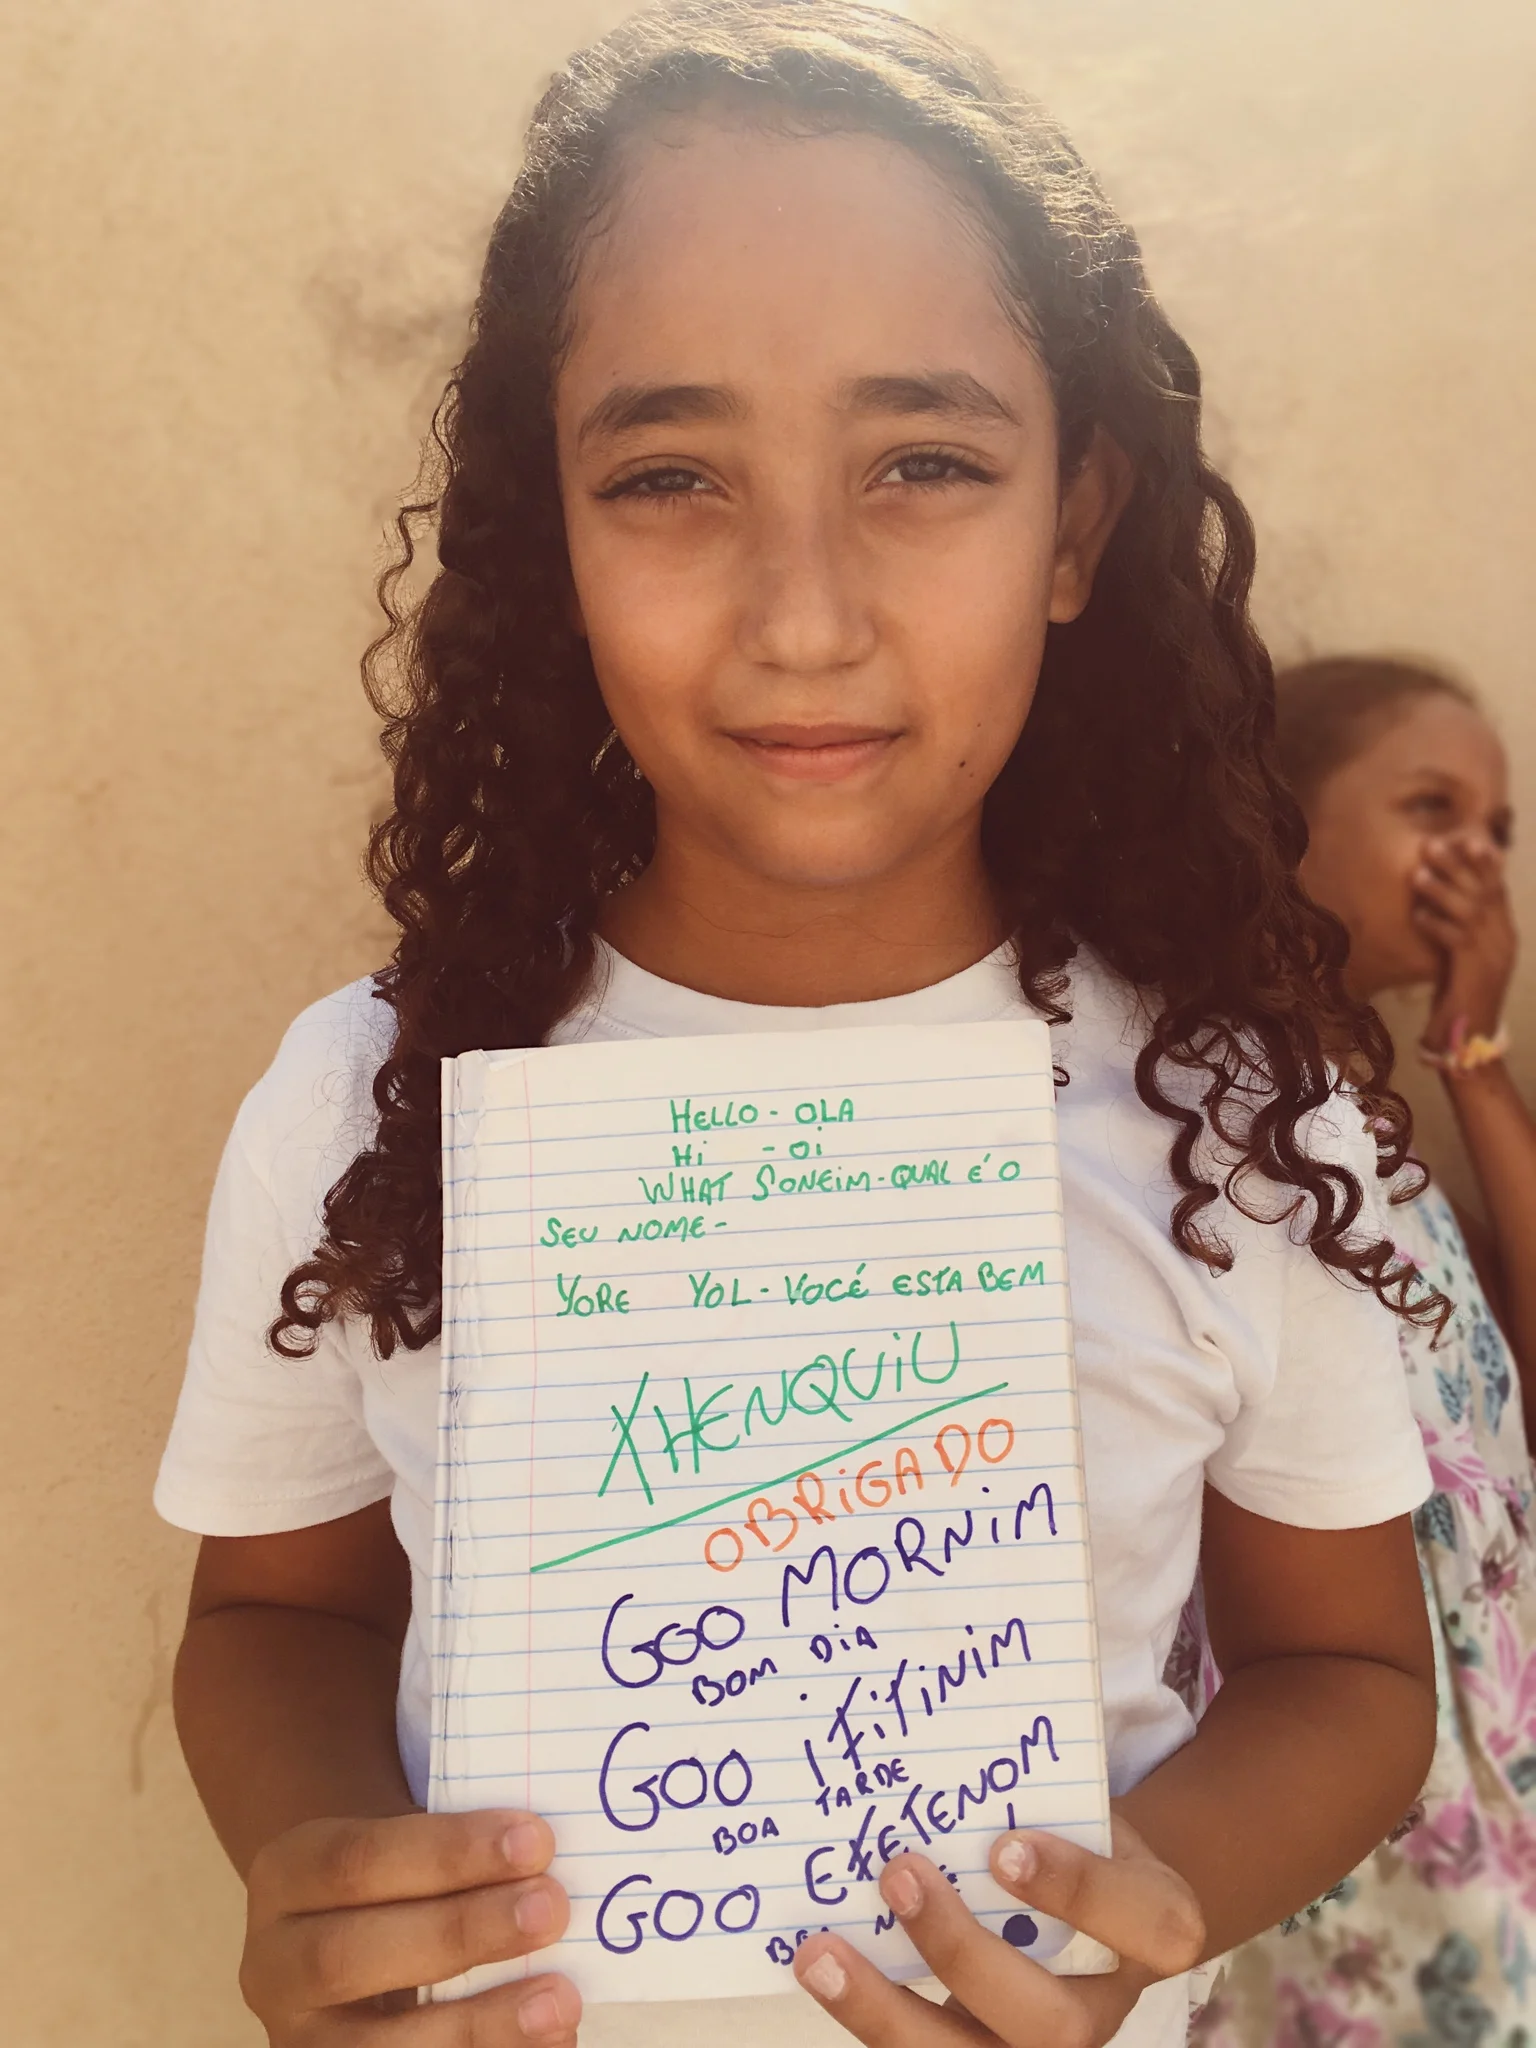 HELLO - OLA
Hi - Oi
WHAT SONEiM - QUAL É O
SEU NOME -
YORE YOL - VOCÉ ESTA BEM
XHENQUiU
OBRiGADO
GOO MORNiM
BOM DiA
GOO iFiTiNiM
BOA TARDE
GOO EXETENOM